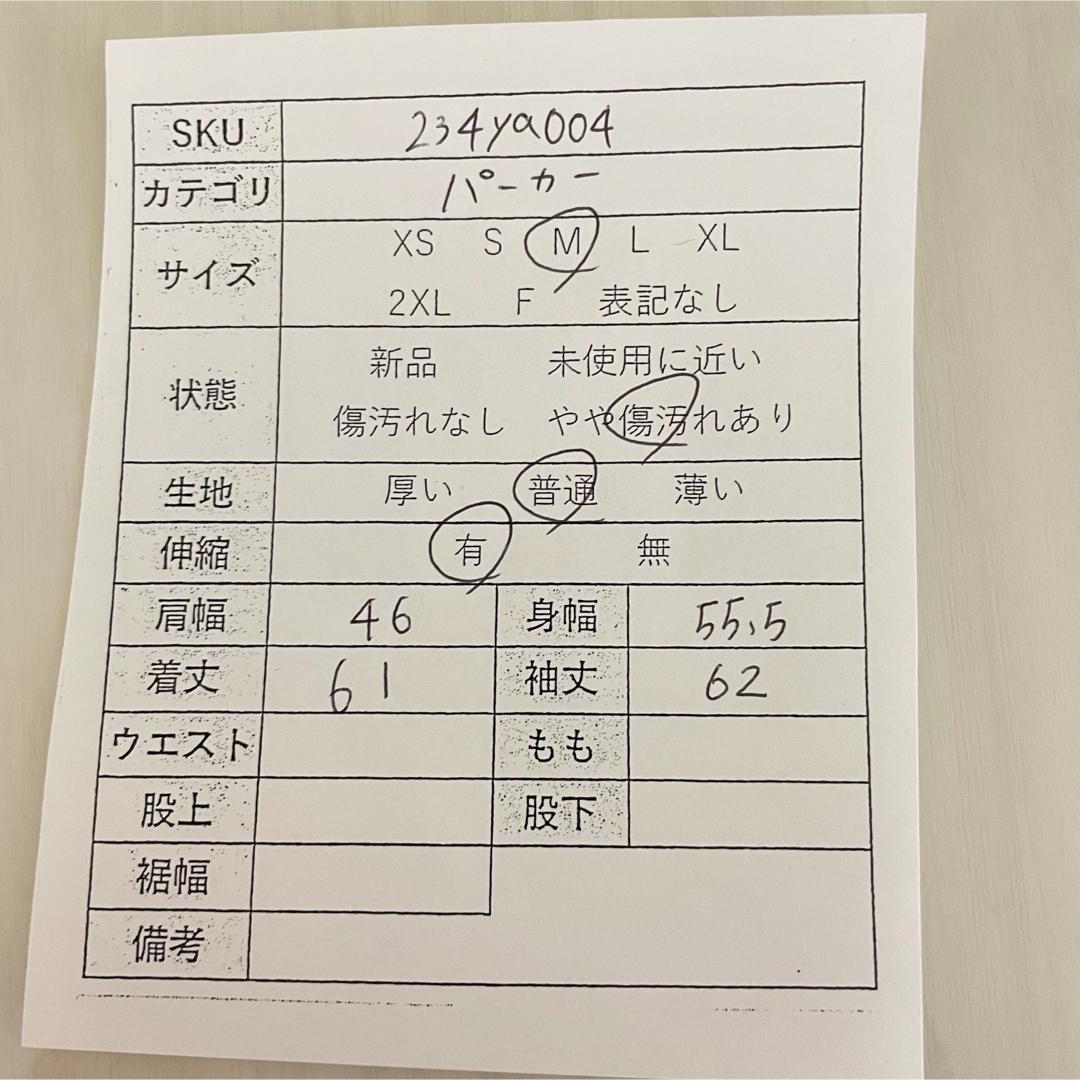 SKU 234ya004
カテゴリ パーカー
サイズ XS S M L XL
2XL F 表記なし
状態 新品 未使用に近い
傷汚れなし やや傷汚れあり
生地 厚い 普通 薄い
伸縮 有 無
肩幅 46 身幅 55.5
着丈 61 袖丈 62
ウエスト もも
股上 股下
裾幅
備考